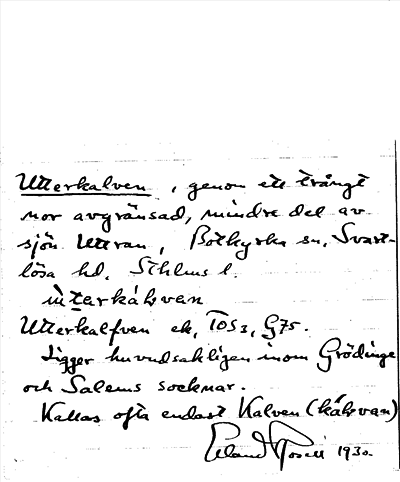 Utterkalven, genom ett trångt
nor avgränsad, mindre del av
sjön Uttran, Botkyrka sn, Svart-
lösa hd. Sthlms l.
Utterkalfven ek, TOS3, G75.
Ligger huvudsakligen inom Grödinge
och Salems socknar.
Kallas ofta endast Kalven (kálvvan)
Erland Rosell 1930.